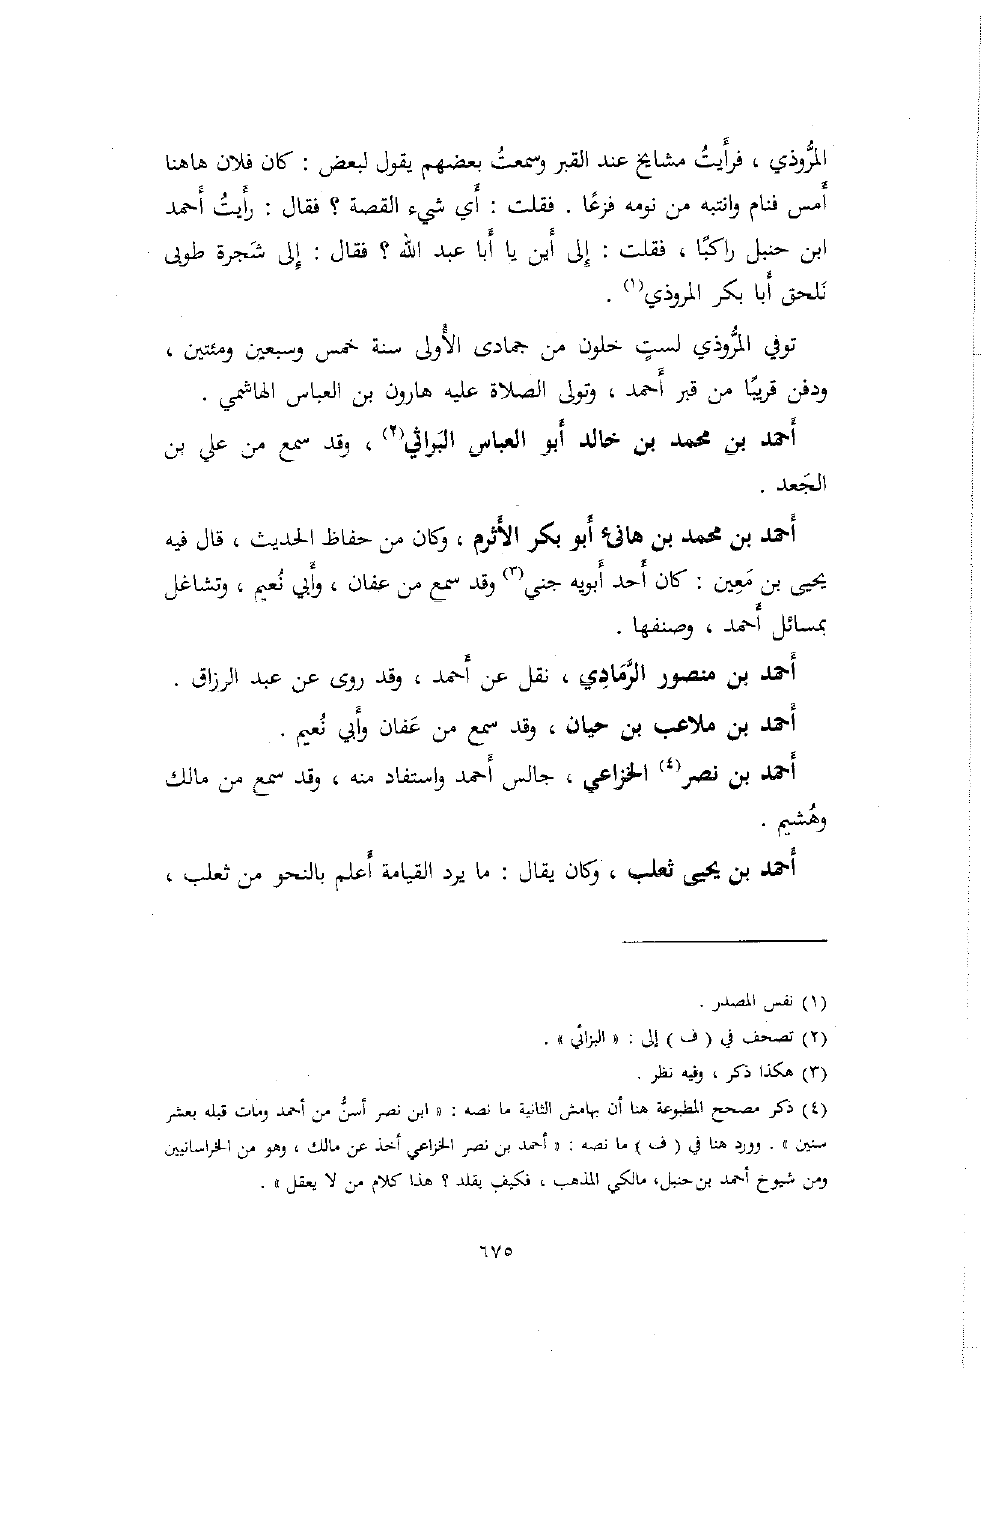 المرُّوذي ، فرأَيتُ مشايخ عند القبر وسمعتُ بعضهم يقول لبعض : كان فلان هاهنا
أَمس فنام وانتبه من نومه فزعًا . فقلت : أَي شيء القصة ؟ فقال : رأَيتُ أَحمد
ابن حنبل راكبًا ، فقلت : إِلى أَين يا أَبا عبد الله ؟ فقال : إِلى شَجرة طوبى
نَلحق أَبا بكر المروذي(١) .
توفي المرُّوذي لستٍ خلون من جمادى الأُولى سنة خمس وسبعين ومئتين ،
ودفن قريبًا من قبر أَحمد ، وتولى الصلاة عليه هارون بن العباس الهاشمي .
أَحمد بن محمد بن خالد أَبو العباس البَراثي(٢) ، وقد سمع من علي بن
الجَعد .
أَحمد بن محمد بن هانئ أَبو بكر الأَثرم ، وكان من حفاظ الحديث ، قال فيه
يحيى بن مَعِين : كان أَحد أَبويه جني(٣) وقد سمع من عفان ، وأَبي نُعيم ، وتشاغل
بمسائل أَحمد ، وصنفها .
أَحمد بن منصور الرَّمَادِي ، نقل عن أَحمد ، وقد روى عن عبد الرزاق .
أَحمد بن ملاعب بن حيان ، وقد سمع من عَفان وأَبي نُعيم .
أَحمد بن نصر(٤) الخزاعي ، جالس أَحمد واستفاد منه ، وقد سمع من مالك
وهُشيم .
أَحمد بن يحيى ثعلب ، وكان يقال : ما يرد القيامة أَعلم بالنحو من ثعلب ،
(١) نفس المصدر .
(٢) تصحف في ( ف ) إلى : « البزائي » .
(٣) هكذا ذكر ، وفيه نظر .
(٤) ذكر مصحح المطبوعة هنا أن بهامش الثانية ما نصه : « ابن نصر أسنُّ من أحمد ومات قبله بعشر
سنين » . وورد هنا في ( ف ) ما نصه : « أحمد بن نصر الخزاعي أخذ عن مالك ، وهو من الخراسانيين
ومن شيوخ أحمد بن حنبل، مالكي المذهب ، فكيف يقلد ؟ هذا كلام من لا يعقل » .
٦٧٥